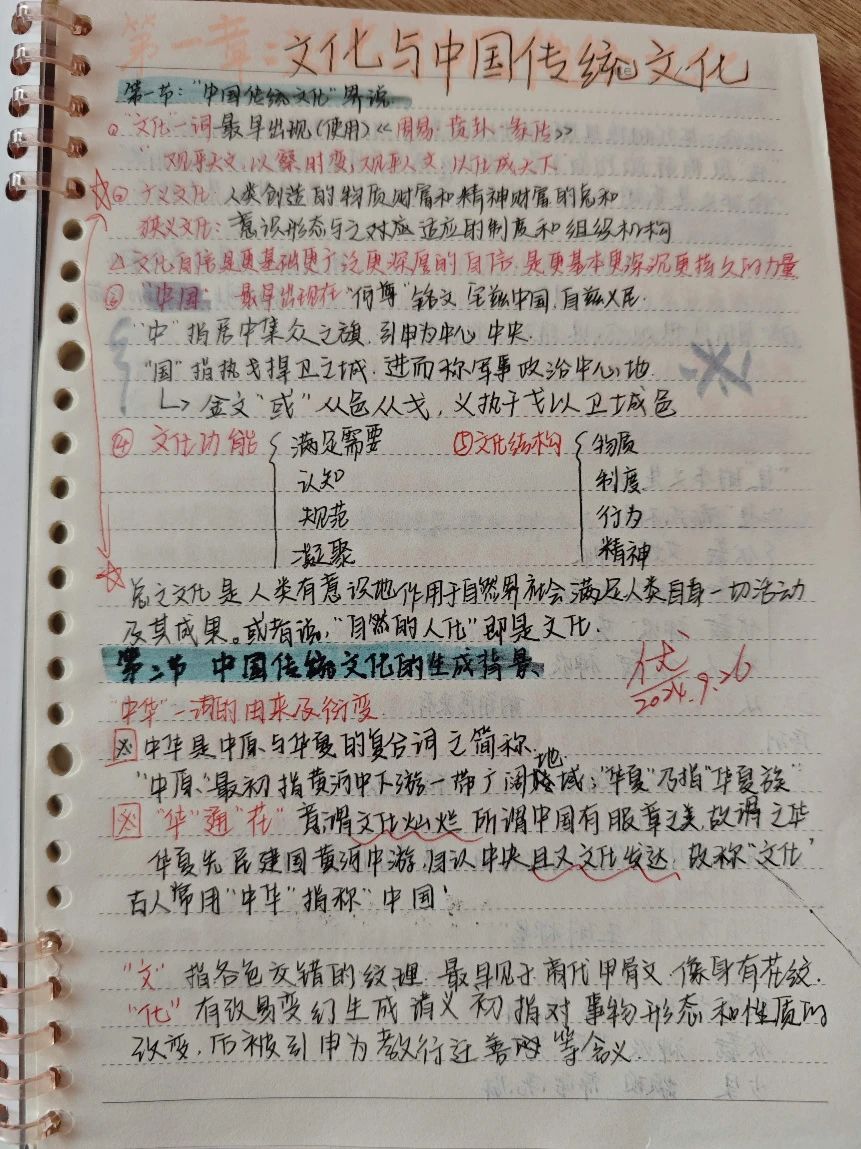 第一章：文化与中国传统文化
第一节："中国传统文化"界说
①"文化"一词最早出现(使用)《周易·贲卦·彖传》
"观乎天文,以察时变,观乎人文,以化成天下
② 广义文化：人类创造的物质财富和精神财富的总和
狭义文化：意识形态与之对应适应的制度和组织机构
△文化自信是更基础更广泛更深厚的自信.是更基本更深沉更持久的力量
③ "中国" 最早出现在"何尊"铭文 宅兹中国,自兹乂民.
"中"指居中集众之旗.引申为中心 中央.
"国"指执戈捍卫之城.进而称军事政治中心地
↳金文"或"从邑从戈,义执干戈以卫城邑
④ 文化功能 { 满足需要 ⑤文化结构 { 物质
认知 制度
规范 行为
凝聚 精神
总之文化是人类有意识地作用于自然界社会满足人类自身一切活动
及其成果。或者说,"自然的人化"即是文化.
第二节 中国传统文化的生成背景
优
2024.9.26
"中华"一词的由来及衍变
※中华是中原与华夏的复合词之简称.
"中原"最初指黄河中下游一带广阔地域;"华夏"乃指"华夏族"
※"华"通"花"意谓文化灿烂 所谓中国有服章之美,故谓之华
华夏先民建国黄河中游,自认中央且又文化发达.故称"文化"
古人常用"中华"指称"中国"
"文"指各色交错的纹理.最早见于商代甲骨文.像身有花纹.
"化"有改易变幻生成诸义 初指对事物形态和性质的
改变,后被引申为教行迁善 等含义